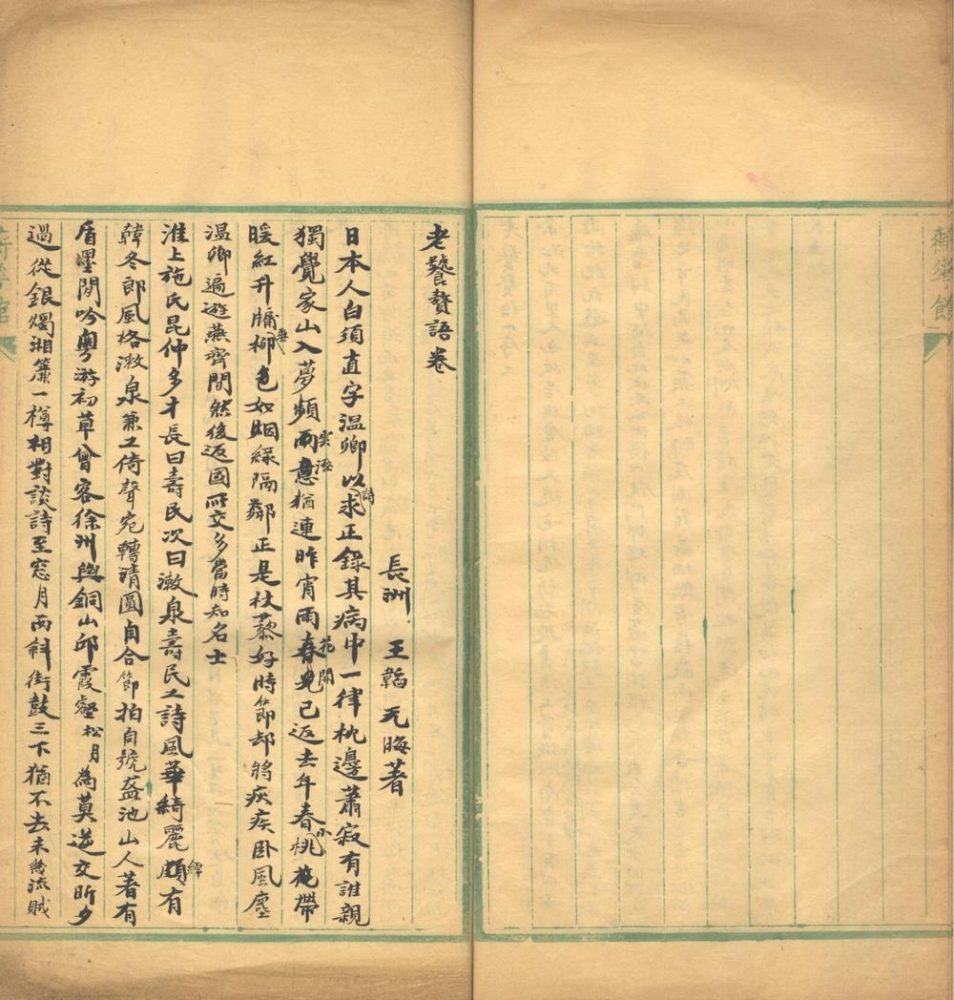 蘅華館
老饕贅語卷
長洲 王韜 无晦著
日本人白須直字溫卿以詩求正錄其病中一律枕邊蕭寂有誰親
獨覺家山入夢頻雨意雲溼猶連昨宵雨春花開已返去年春小桃花帶
暖紅升牖垂柳色如烟綠隔鄰正是杖藜好時節却將疾疾卧風塵
溫卿遍遊燕齊間然後返國所交多當時知名士
淮上施氏昆仲多才長曰壽民次曰漱泉壽民工詩風華綺麗頗有
韓冬郎風格漱泉兼工倚聲宛轉清圓自合節拍自號葢池山人著有
盾墨閒吟粵游初草曾客徐州與銅山邱霞壑松月為莫逆交昕夕
過從銀燭湘簾一樽相對談詩至窓月西斜街鼓三下猶不去未幾流賊